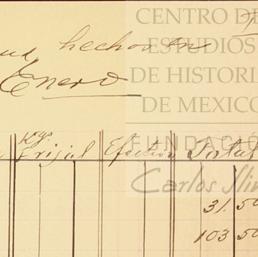 CENTRO DE
ESTUDIOS
DE HISTORIA
DE MEXICO
FUNDACIÓN
Carlos Slim
hechos en
Enero
Kgs
Frijol Efectivo Total
31.50
103.50